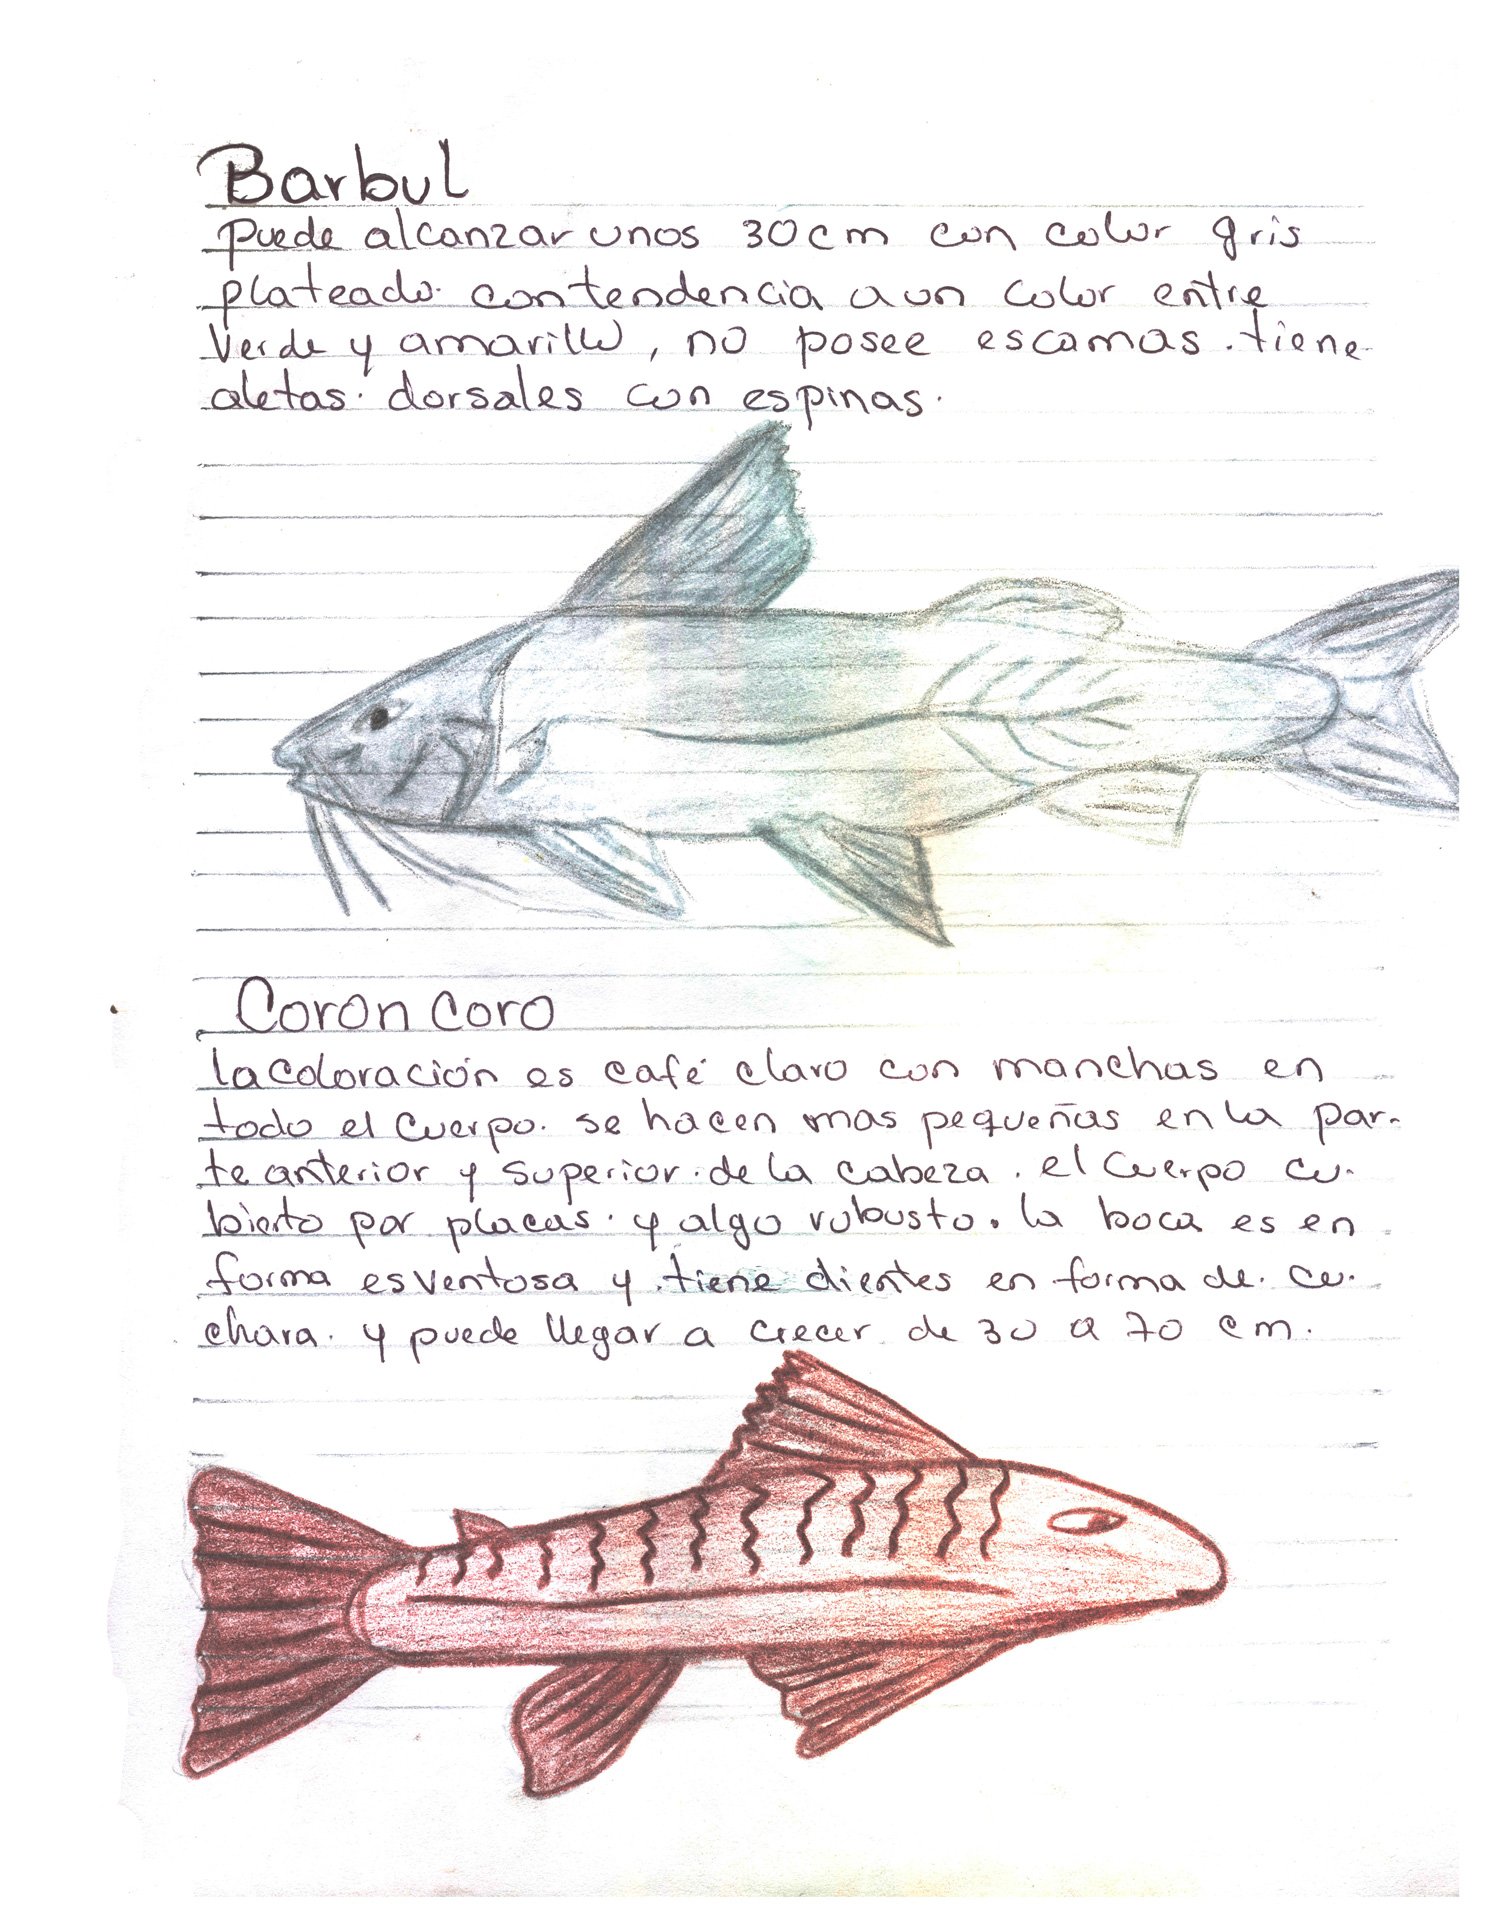 Barbul
puede alcanzar unos 30cm con color gris
plateado. con tendencia a un color entre
Verde y amarillo, no posee escamas. tiene
aletas. dorsales con espinas.
Coroncoro
la coloración es café claro con manchas en
todo el cuerpo. se hacen mas pequeñas en la par-
te anterior y superior. de la cabeza. el cuerpo cu-
bierto por placas. y algo robusto. la boca es en
forma es ventosa y tiene dientes en forma de. cu-
chara. y puede llegar a crecer de 30 a 70 cm.